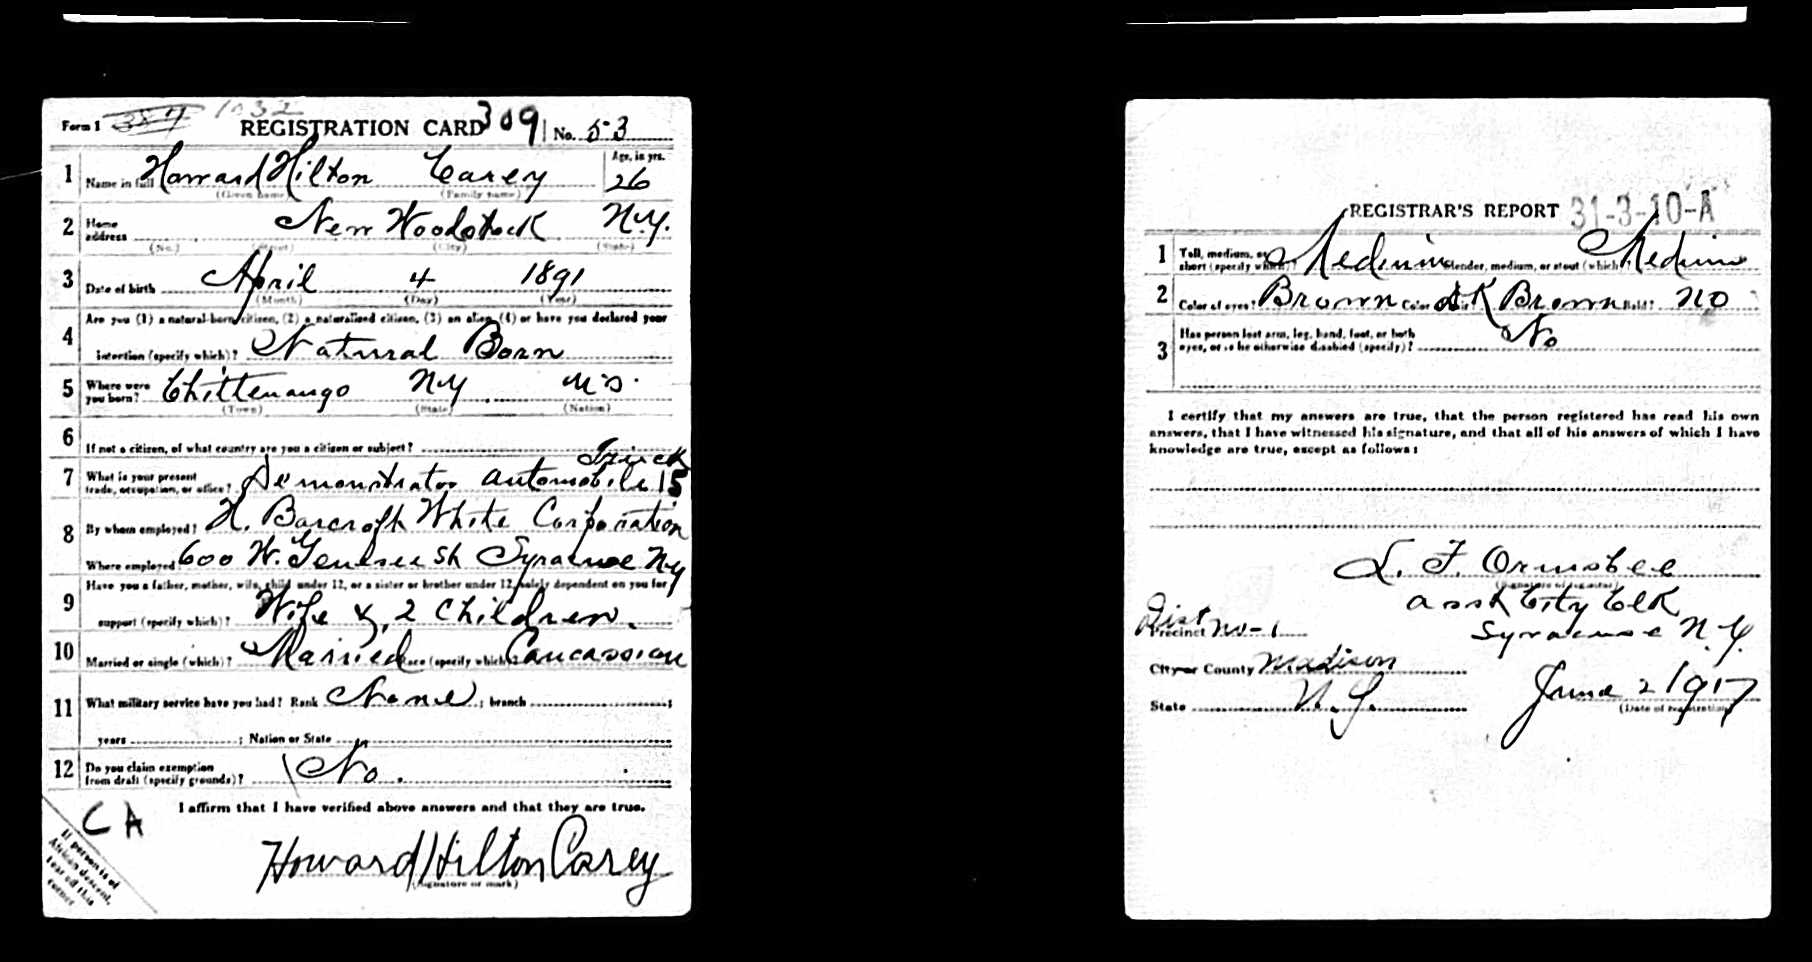 Form 1 384 1032 REGISTRATION CARD 309 No. 53
1 Name in full Howard Hilton Carey Age, in yrs. 26
(Given name) (Family name)
2 Home address New Woodstock N.Y.
(No.) (Street) (City) (State)
3 Date of birth April 4 1891
(Month) (Day) (Year)
4 Are you (1) a natural-born citizen, (2) a naturalized citizen, (3) an alien, (4) or have you declared your
intention (specify which)? Natural Born
5 Where were you born? Chittenango N.Y. U.S.
(Town) (State) (Nation)
6 If not a citizen, of what country are you a citizen or subject?
Truck
7 What is your present trade, occupation, or office? Demonstrator automobile 15
8 By whom employed? H. Barcroft White Corporation
Where employed 600 W. Genesee St Syracuse N.Y
9 Have you a father, mother, wife, child under 12, or a sister or brother under 12, solely dependent on you for
support (specify which)? Wife & 2 Children.
10 Married or single (which)? Married Race (specify which)? Caucassian
11 What military service have you had? Rank None ; branch ;
years ; Nation or State
12 Do you claim exemption from draft (specify grounds)? No.
I affirm that I have verified above answers and that they are true.
C A
Howard Hilton Carey
(Signature or mark)
If person is of
African descent,
tear off this
corner
REGISTRAR'S REPORT 31-3-10-A
1 Tall, medium, or short (specify which)? Medium Slender, medium, or stout (which)? Medium
2 Color of eyes? Brown Color of hair? dK Brown Bald? No
3 Has person lost arm, leg, hand, foot, or both
eyes, or is he otherwise disabled (specify)? No
I certify that my answers are true, that the person registered has read his own
answers, that I have witnessed his signature, and that all of his answers of which I have
knowledge are true, except as follows:
L. F. Ormsbee
(Signature of registrar)
asst City Clk
Dist
Precinct No-1 Syracuse N.Y.
City or County Madison
State N.Y. June 2 1917
(Date of registration)